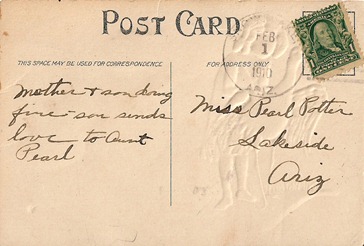 POST CARD
THIS SPACE MAY BE USED FOR CORRESPONDENCE
FOR ADDRESS ONLY
FEB
1
1910
ARIZ.
Mother + son doing
fine - son sends
love to Aunt
Pearl
Miss Pearl Potter
Lakeside
Ariz